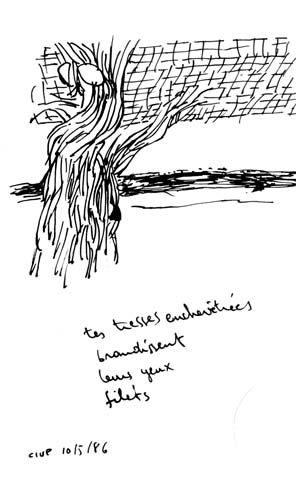 tes tresses enchevêtrées
brandissent
leurs yeux
filets
CIUP 10/5/86